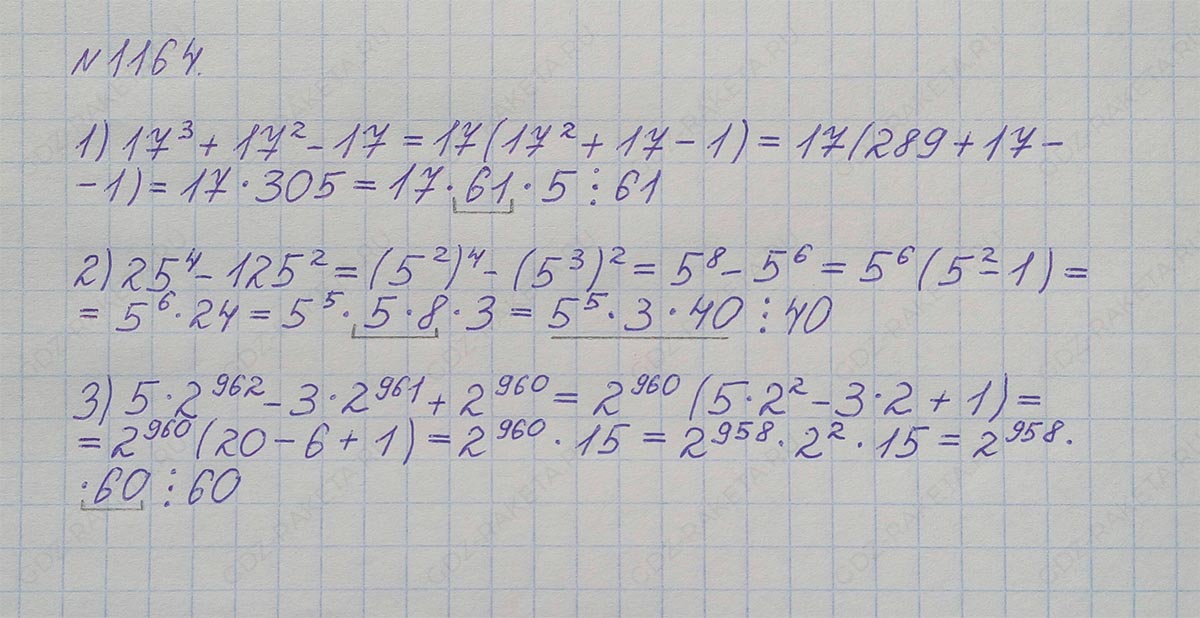 №1164.
1) 17³ + 17² - 17 = 17(17² + 17 - 1) = 17(289 + 17 -
- 1) = 17 · 305 = 17 · 61 · 5 ⋮ 61
2) 25⁴ - 125² = (5²)⁴ - (5³)² = 5⁸ - 5⁶ = 5⁶(5² - 1) =
= 5⁶ · 24 = 5⁵ · 5 · 8 · 3 = 5⁵ · 3 · 40 ⋮ 40
3) 5 · 2⁹⁶² - 3 · 2⁹⁶¹ + 2⁹⁶⁰ = 2⁹⁶⁰ (5 · 2² - 3 · 2 + 1) =
= 2⁹⁶⁰ (20 - 6 + 1) = 2⁹⁶⁰ · 15 = 2⁹⁵⁸ · 2² · 15 = 2⁹⁵⁸ ·
· 60 ⋮ 60
GDZ-RAKETA.RU